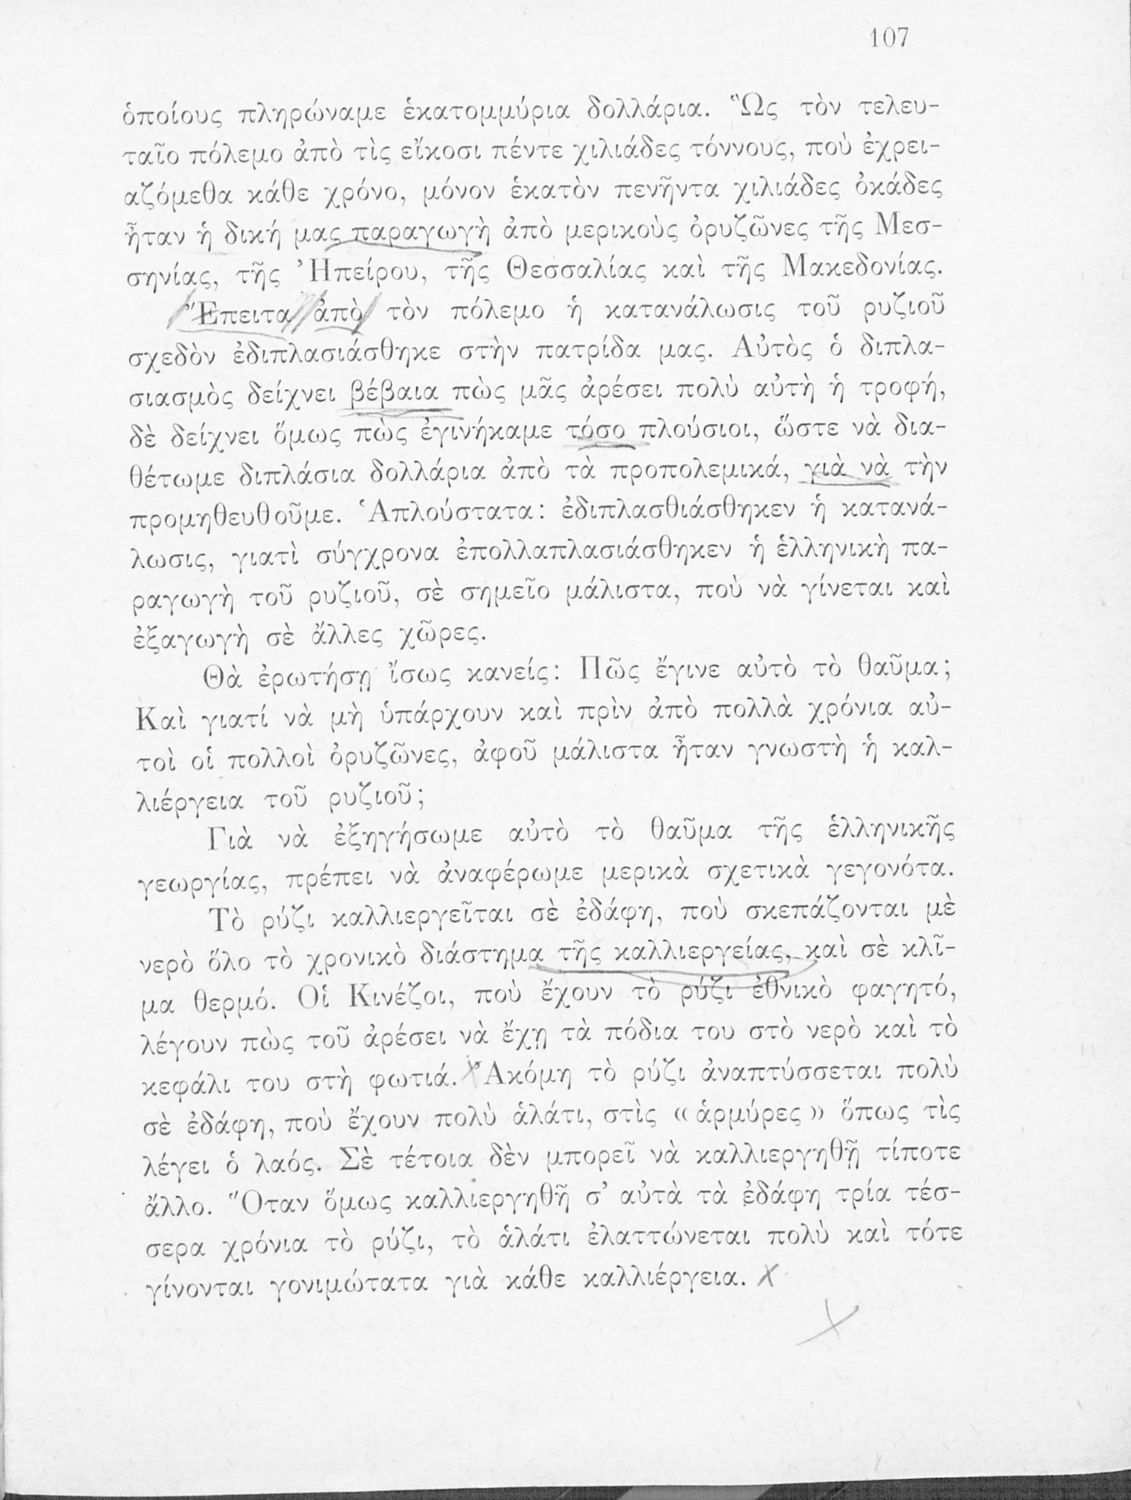 107
ὁποίους πληρώναμε ἑκατομμύρια δολλάρια. Ὣς τὸν τελευ-
ταῖο πόλεμο ἀπὸ τὶς εἴκοσι πέντε χιλιάδες τόννους, ποὺ ἐχρει-
αζόμεθα κάθε χρόνο, μόνον ἑκατὸν πενῆντα χιλιάδες ὀκάδες
ἦταν ἡ δική μας παραγωγὴ ἀπὸ μερικοὺς ὀρυζῶνες τῆς Μεσ-
σηνίας, τῆς Ἠπείρου, τῆς Θεσσαλίας καὶ τῆς Μακεδονίας.
Ἔπειτα ἀπὸ τὸν πόλεμο ἡ κατανάλωσις τοῦ ρυζιοῦ
σχεδὸν ἐδιπλασιάσθηκε στὴν πατρίδα μας. Αὐτὸς ὁ διπλα-
σιασμὸς δείχνει βέβαια πὼς μᾶς ἀρέσει πολὺ αὐτὴ ἡ τροφή,
δὲ δείχνει ὅμως πὼς ἐγινήκαμε τόσο πλούσιοι, ὥστε νὰ δια-
θέτωμε διπλάσια δολλάρια ἀπὸ τὰ προπολεμικά, γιὰ νὰ τὴν
προμηθευθοῦμε. Ἁπλούστατα: ἐδιπλασθιάσθηκεν ἡ κατανά-
λωσις, γιατὶ σύγχρονα ἐπολλαπλασιάσθηκεν ἡ ἑλληνικὴ πα-
ραγωγὴ τοῦ ρυζιοῦ, σὲ σημεῖο μάλιστα, ποὺ νὰ γίνεται καὶ
ἐξαγωγὴ σὲ ἄλλες χῶρες.
Θὰ ἐρωτήσῃ ἴσως κανείς: Πῶς ἔγινε αὐτὸ τὸ θαῦμα;
Καὶ γιατί νὰ μὴ ὑπάρχουν καὶ πρὶν ἀπὸ πολλὰ χρόνια αὐ-
τοὶ οἱ πολλοὶ ὀρυζῶνες, ἀφοῦ μάλιστα ἦταν γνωστὴ ἡ καλ-
λιέργεια τοῦ ρυζιοῦ;
Γιὰ νὰ ἐξηγήσωμε αὐτὸ τὸ θαῦμα τῆς ἑλληνικῆς
γεωργίας, πρέπει νὰ ἀναφέρωμε μερικὰ σχετικὰ γεγονότα.
Τὸ ρύζι καλλιεργεῖται σὲ ἐδάφη, ποὺ σκεπάζονται μὲ
νερὸ ὅλο τὸ χρονικὸ διάστημα τῆς καλλιεργείας, καὶ σὲ κλῖ-
μα θερμό. Οἱ Κινέζοι, ποὺ ἔχουν τὸ ρύζι ἐθνικὸ φαγητό,
λέγουν πὼς τοῦ ἀρέσει νὰ ἔχῃ τὰ πόδια του στὸ νερὸ καὶ τὸ
κεφάλι του στὴ φωτιά. Ἀκόμη τὸ ρύζι ἀναπτύσσεται πολὺ
σὲ ἐδάφη, ποὺ ἔχουν πολὺ ἁλάτι, στὶς «ἁρμύρες» ὅπως τὶς
λέγει ὁ λαός. Σὲ τέτοια δὲν μπορεῖ νὰ καλλιεργηθῇ τίποτε
ἄλλο. Ὅταν ὅμως καλλιεργηθῇ σ᾽ αὐτὰ τὰ ἐδάφη τρία τέσ-
σερα χρόνια τὸ ρύζι, τὸ ἁλάτι ἐλαττώνεται πολὺ καὶ τότε
γίνονται γονιμώτατα γιὰ κάθε καλλιέργεια.